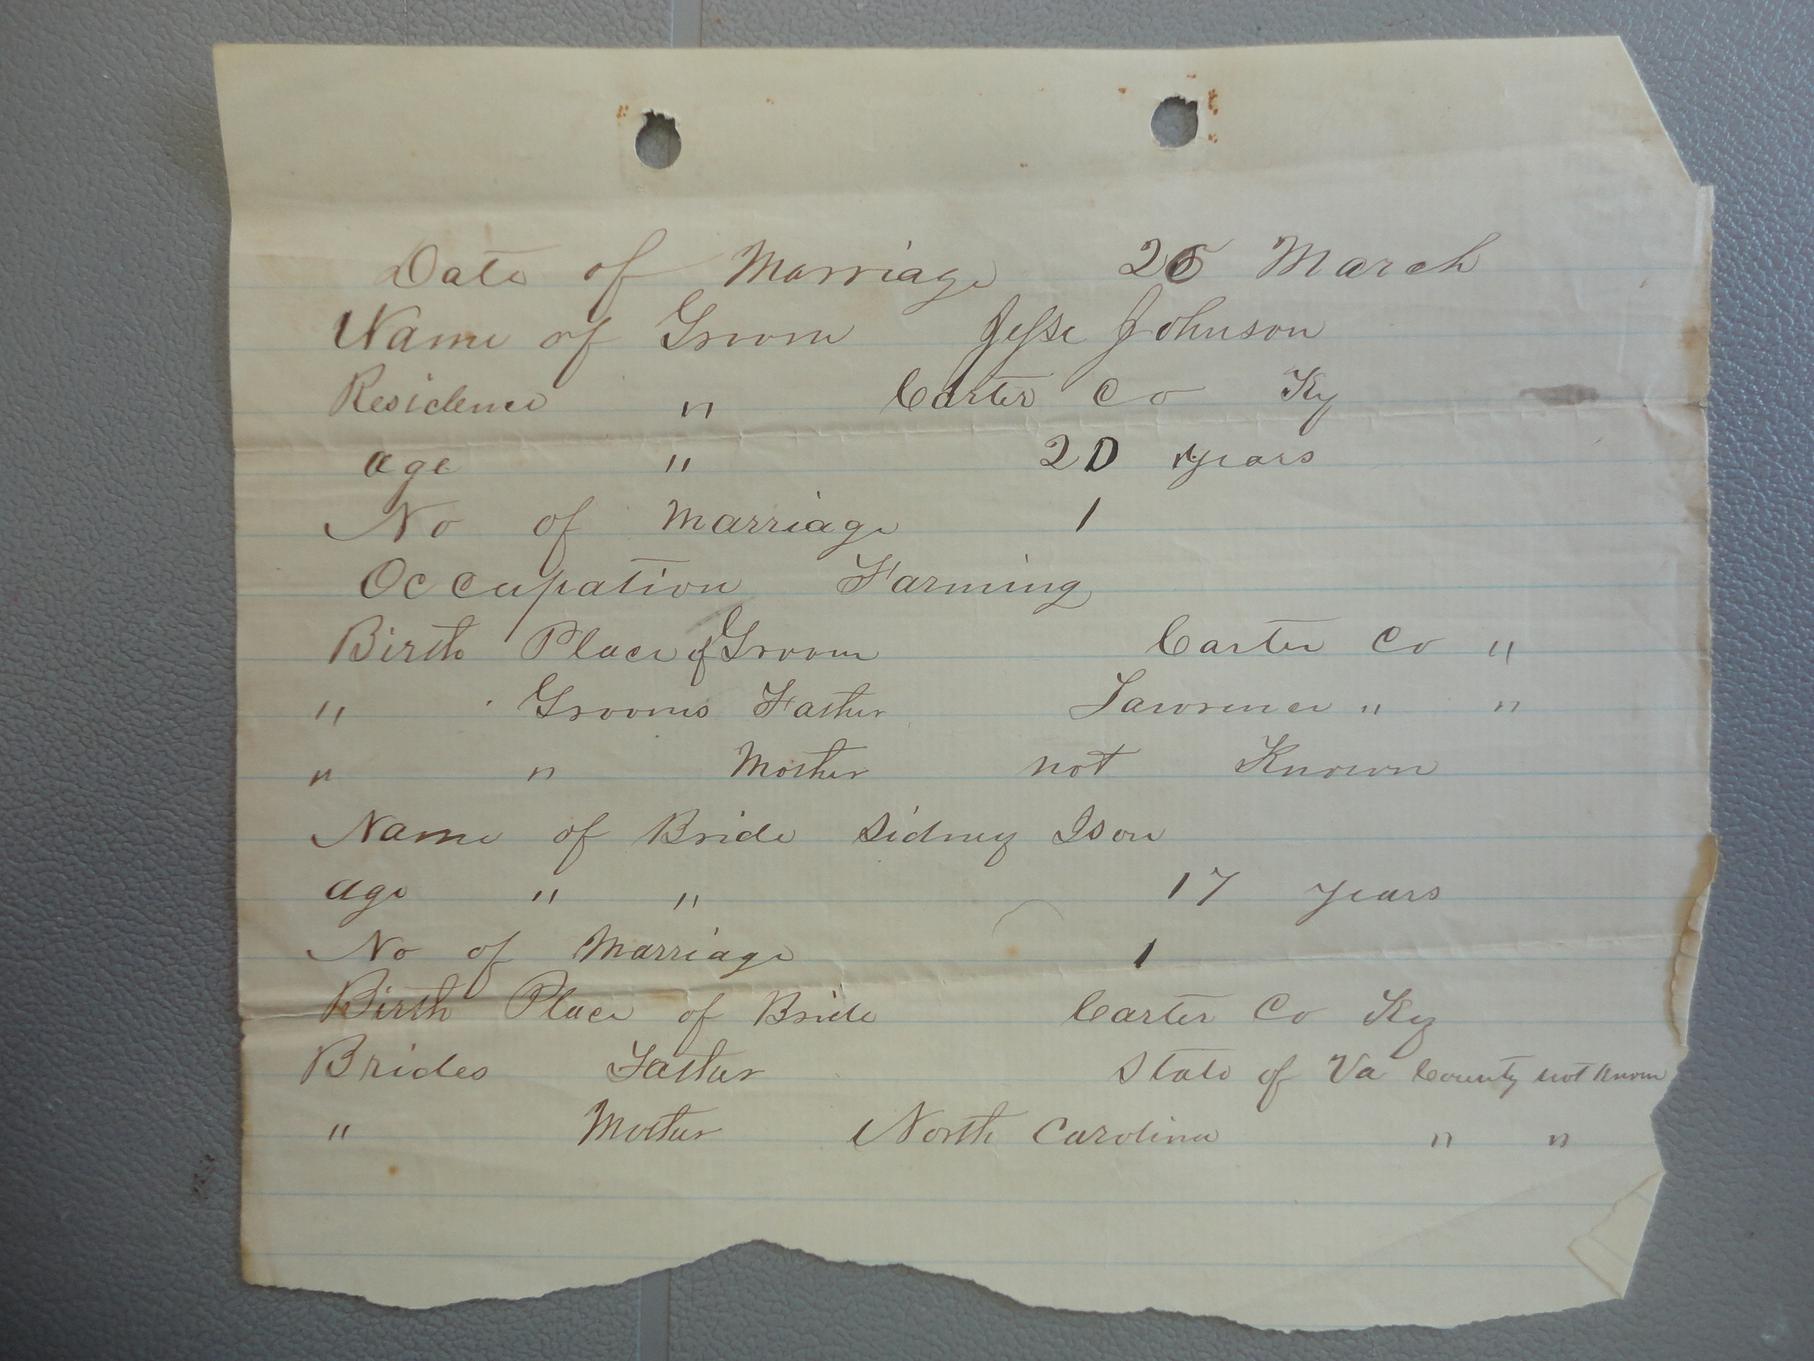 Date of Marriage 25 March
Name of Groom Jesse Johnson
Residence " Carter Co Ky
age " 20 years
No of Marriage 1
Occupation Farming
Birth Place of Groom Carter Co "
" Grooms Father Lawrence " "
" " Mother not Known
Name of Bride Sidney Ison
age " " 17 years
No of Marriage 1
Birth Place of Bride Carter Co Ky
Brides Father State of Va County not known
" Mother North Carolina " "